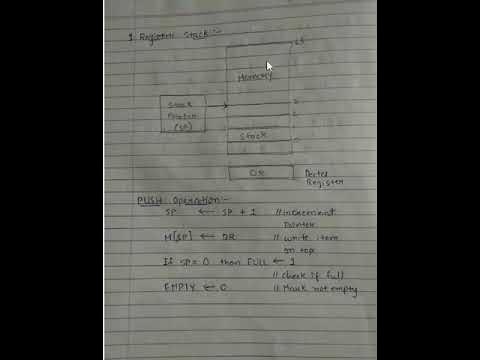 1 Register Stack :-
63
Memory
Stack
Pointer
(SP)
Stack
DR
Register
PUSH Operation :-
SP ← SP + 1 // increment
Pointer
M[SP] ← DR // write item
on top
If SP = 0 then FULL ← 1
// check if full
EMPTY ← 0 // Mark not empty